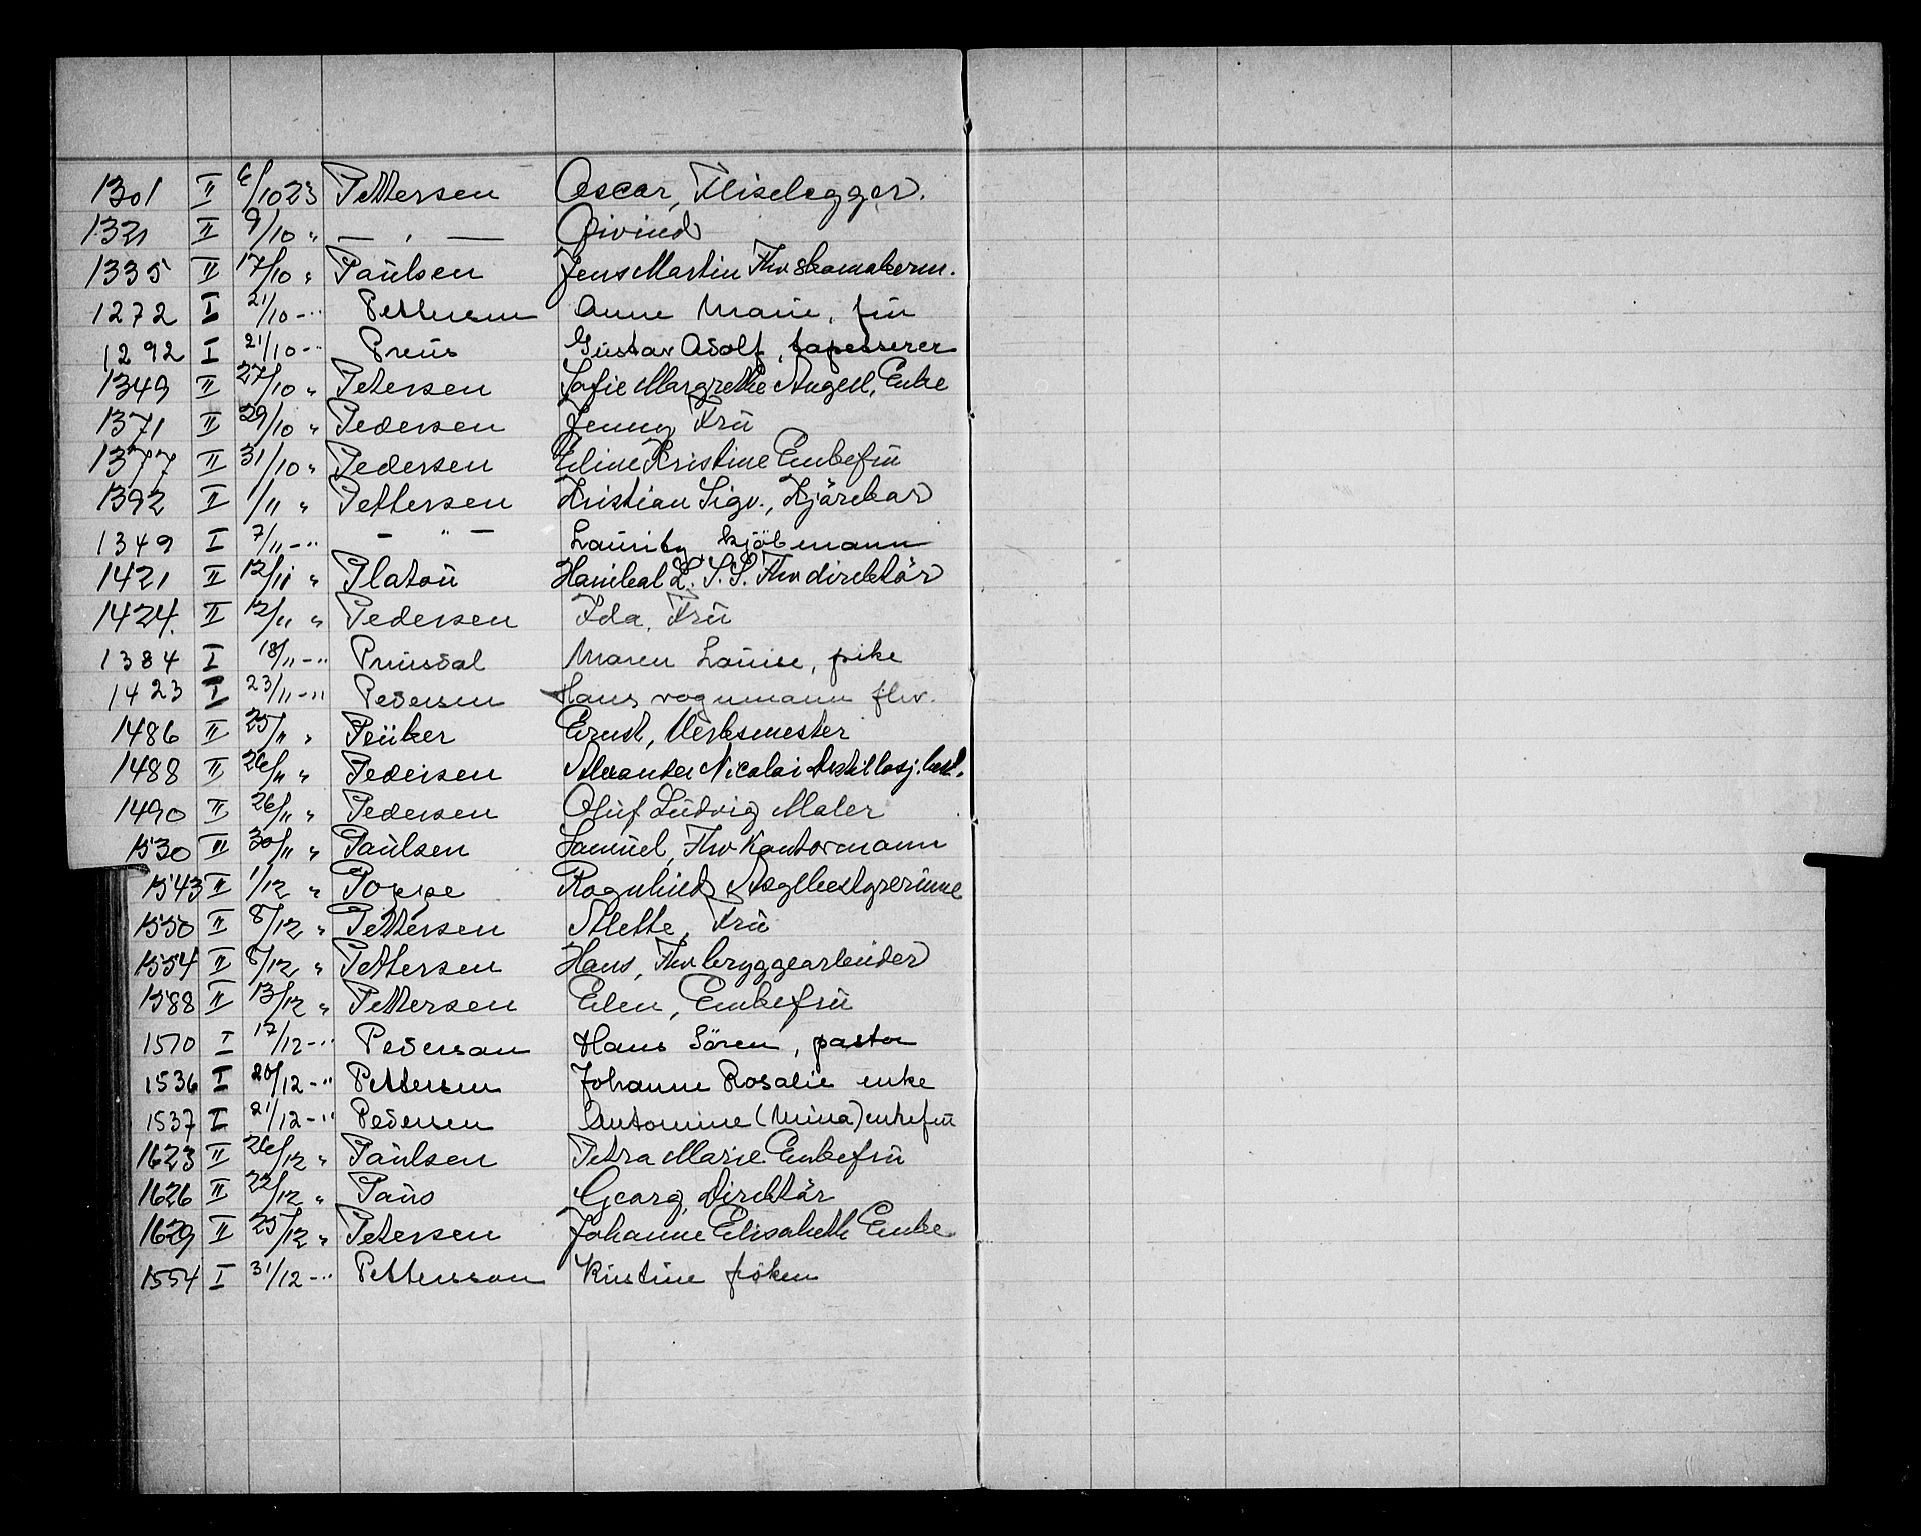 1301 II 6/10 23 Pettersen Oscar, Fliselegger.
1321 II 9/10 " — " — Øivind
1335 II 17/10 " Paulsen Jens Martin Fhv skomakerm.
1272 I 21/10 - " Pettersen Anne Marie, fru
1292 I 21/10 - " Preus Gustav Adolf, tapetserer
1349 II 27/10 " Petersen Sofie Margrethe Angell, Enke
1371 II 29/10 " Pedersen Jenny Fru
1377 II 31/10 " Pedersen Eline Kristine Enkefru
1392 II 1/11 " Pettersen Kristian Sigv., Kjörekar
1349 I 7/11 - " — " — Lauritz kjöbmann
1421 II 12/11 " Platou Hanibal L. S. S. Fhv direktör
1424. II 12/11 " Pedersen Ida, Fru
1384 I 18/11 - " Maren Louise, pike
1423 I 23/11 - " Pedersen Hans vognmann fhv.
1486 II 25/11 " Peüker Ernst, Verksmester
1488 II 26/11 " Pedersen Alexander Nicolai Destillasj. best.
1490 II 26/11 " Pedersen Oluf Ludvig Maler
1530 II 30/11 " Paulsen Samuel, Fhv Kontormann
1543 II 1/12 " Poppe Ragnhild, Asylbestyrerinne
1550 II 8/12 " Pettersen Alette, Fru
1554 II 8/12 " Pettersen Hans, Fhv bryggearbeider
1588 II 13/12 " Pettersen Elen, Enkefru
1510 I 17/12 - " Pedersen Hans Sören, pastor
1536 I 20/12 - " Pettersen Johanne Rosalie enke
1537 I 21/12 - " Pedersen Antomine (Mina) enkefru
1623 II 26/12 " Paulsen Petra Marie Enkefru
1626 II 22/12 " Paus Georg, Direktör
1629 II 25/12 " Petersen Johanne Elisabeth Enke
1554 I 31/12 - " Pettersson Kristine fröken